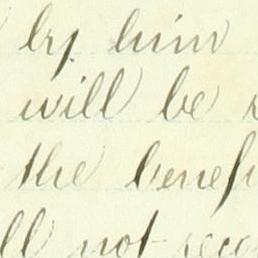 by him
will be
the benef
ll not rece